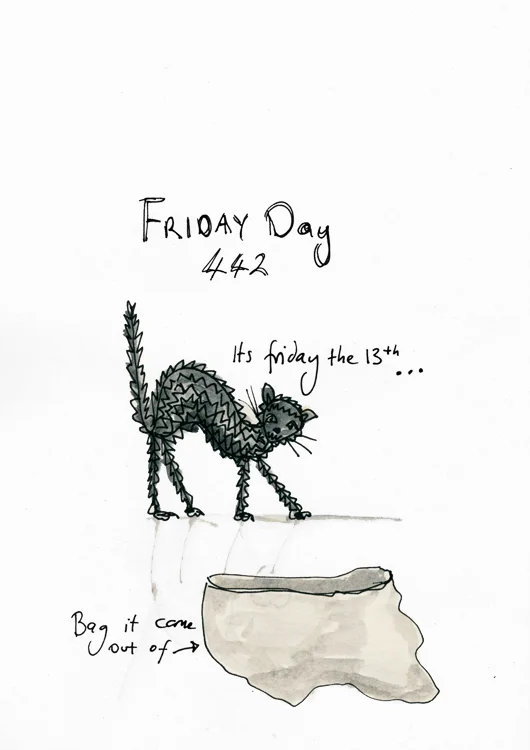 FRIDAY Day
442
Its friday the 13th...
Bag it came
out of →